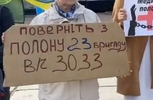 ПОВЕРНІТЬ З
ПОЛОНУ 23 БРИГАДУ
В/Ч 3033